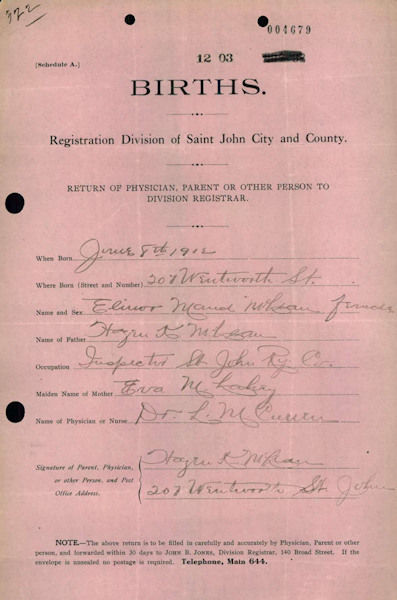 322
004679
(Schedule A.)
12 03
BIRTHS.
Registration Division of Saint John City and County.
RETURN OF PHYSICIAN, PARENT OR OTHER PERSON TO
DIVISION REGISTRAR.
When Born June 8th 1912
Where Born (Street and Number) 207 Wentworth St.
Name and Sex Elinor Maud McLean female
Name of Father Hazen K McLean
Occupation Inspector St John Ry. Co.
Maiden Name of Mother Eva M
Name of Physician or Nurse Dr. L. M Curren
Signature of Parent, Physician,
or other Person, and Post
Office Address.
Hazen K McLean
207 Wentworth St. John
NOTE.—The above return is to be filled in carefully and accurately by Physician, Parent or other
person, and forwarded within 30 days to JOHN B. JONES, Division Registrar, 140 Broad Street. If the
envelope is unsealed no postage is required. Telephone, Main 644.